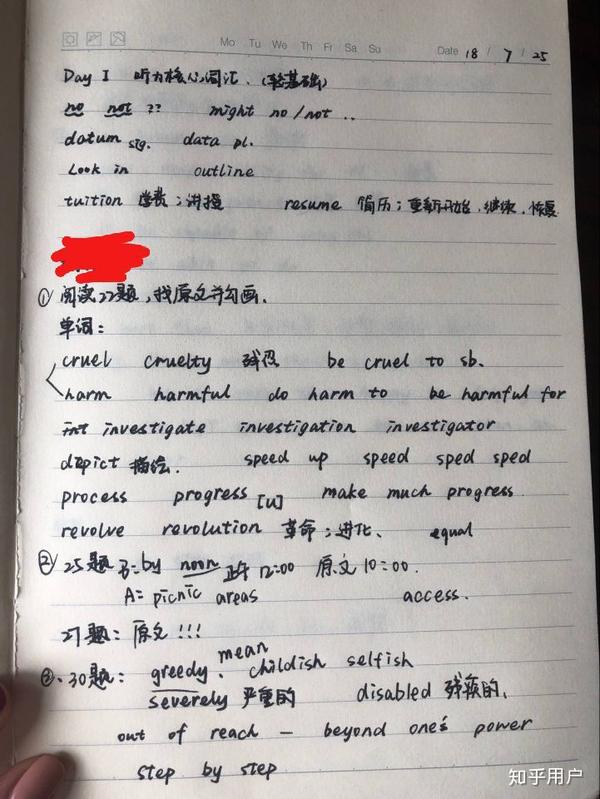 Mo Tu We Th Fr Sa Su Date 18 / 7 / 25
Day 1 听力核心词汇.(轻基础)
no not ?? might no/not ..
datum sig. data pl.
Look in outline
tuition 学费;讲授 resume 简历;重新开始,继续,恢复
① 阅读27题,找原文并勾画.
单词:
cruel cruelty 残忍 be cruel to sb.
harm harmful do harm to be harmful for
int investigate investigation investigator
depict 描绘. speed up speed sped sped
process progress [U] make much progress
revolve revolution 革命;进化、 equal
② 25题 B=by noon 正午 12:00 原文10:00.
A= picnic areas access.
27题: 原文!!!
③、30题: greedy、mean childish selfish
severely 严重的 disabled 残疾的.
out of reach — beyond one's power
step by step
知乎用户